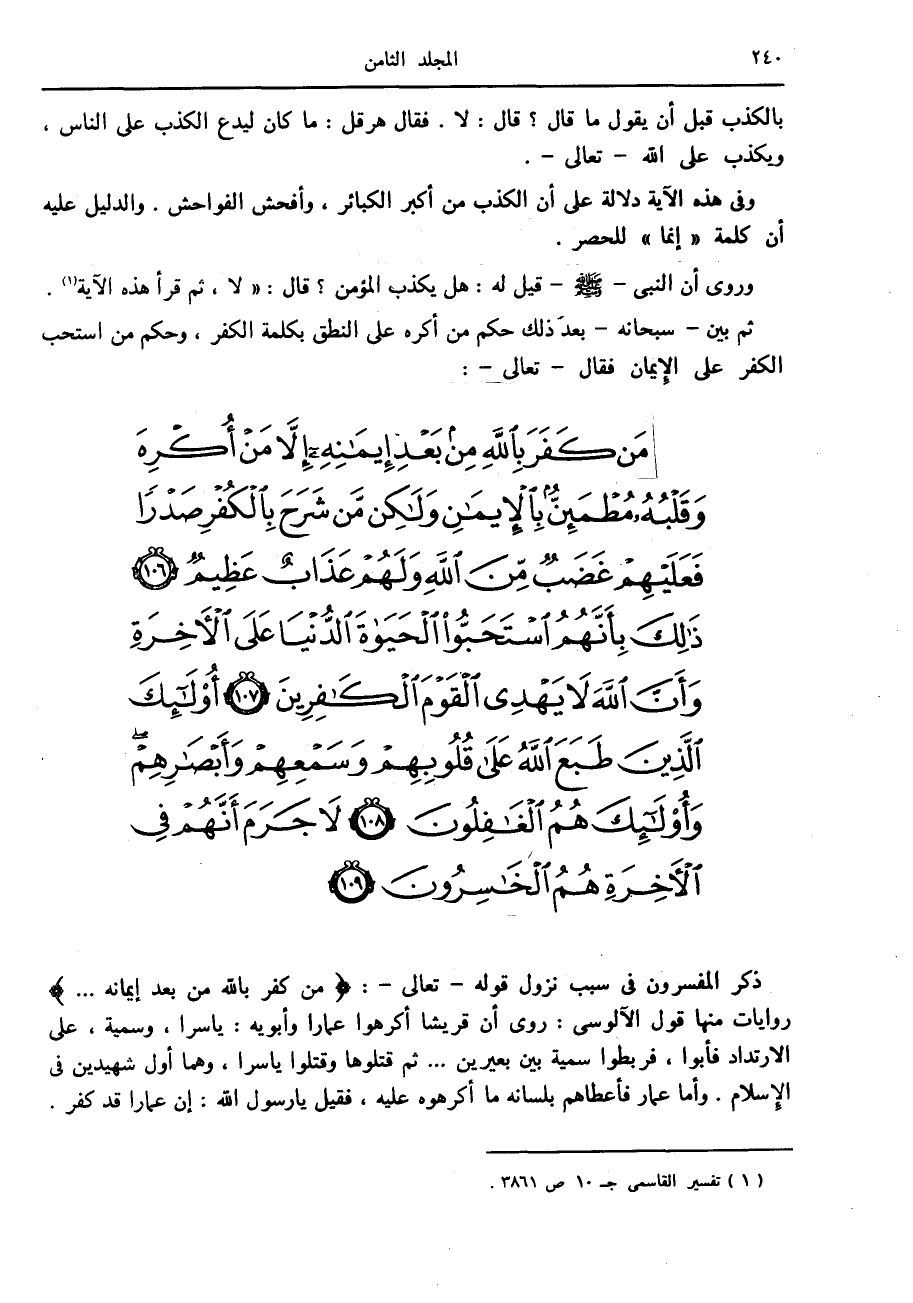 ٢٤٠ المجلد الثامن
بالكذب قبل أن يقول ما قال ؟ قال : لا . فقال هرقل : ما كان ليدع الكذب على الناس ،
ويكذب على الله – تعالى – .
وفى هذه الآية دلالة على أن الكذب من أكبر الكبائر ، وأفحش الفواحش . والدليل عليه
أن كلمة « إنما » للحصر .
وروى أن النبى – ﷺ – قيل له : هل يكذب المؤمن ؟ قال : « لا ، ثم قرأ هذه الآية(١) .
ثم بين – سبحانه – بعد ذلك حكم من أكره على النطق بكلمة الكفر ، وحكم من استحب
الكفر على الإيمان فقال – تعالى – :
مَن كَفَرَ بِٱللَّهِ مِنۢ بَعْدِ إِيمَٰنِهِۦٓ إِلَّا مَنْ أُكْرِهَ
وَقَلْبُهُۥ مُطْمَئِنٌّۢ بِٱلْإِيمَٰنِ وَلَٰكِن مَّن شَرَحَ بِٱلْكُفْرِ صَدْرًا
فَعَلَيْهِمْ غَضَبٌ مِّنَ ٱللَّهِ وَلَهُمْ عَذَابٌ عَظِيمٌ ١٠٦
ذَٰلِكَ بِأَنَّهُمُ ٱسْتَحَبُّوا۟ ٱلْحَيَوٰةَ ٱلدُّنْيَا عَلَى ٱلْءَاخِرَةِ
وَأَنَّ ٱللَّهَ لَا يَهْدِى ٱلْقَوْمَ ٱلْكَٰفِرِينَ ١٠٧ أُو۟لَٰٓئِكَ
ٱلَّذِينَ طَبَعَ ٱللَّهُ عَلَىٰ قُلُوبِهِمْ وَسَمْعِهِمْ وَأَبْصَٰرِهِمْ ۖ
وَأُو۟لَٰٓئِكَ هُمُ ٱلْغَٰفِلُونَ ١٠٨ لَا جَرَمَ أَنَّهُمْ فِى
ٱلْءَاخِرَةِ هُمُ ٱلْخَٰسِرُونَ ١٠٩
ذكر المفسرون فى سبب نزول قوله – تعالى – : ﴿ من كفر بالله من بعد إيمانه ... ﴾
روايات منها قول الآلوسى : روى أن قريشا أكرهوا عمارا وأبويه : ياسرا ، وسمية ، على
الارتداد فأبوا ، فربطوا سمية بين بعيرين ... ثم قتلوها وقتلوا ياسرا ، وهما أول شهيدين فى
الإسلام . وأما عمار فأعطاهم بلسانه ما أكرهوه عليه ، فقيل يارسول الله : إن عمارا قد كفر .
( ١ ) تفسير القاسمى جـ ١٠ ص ٣٨٦١ .